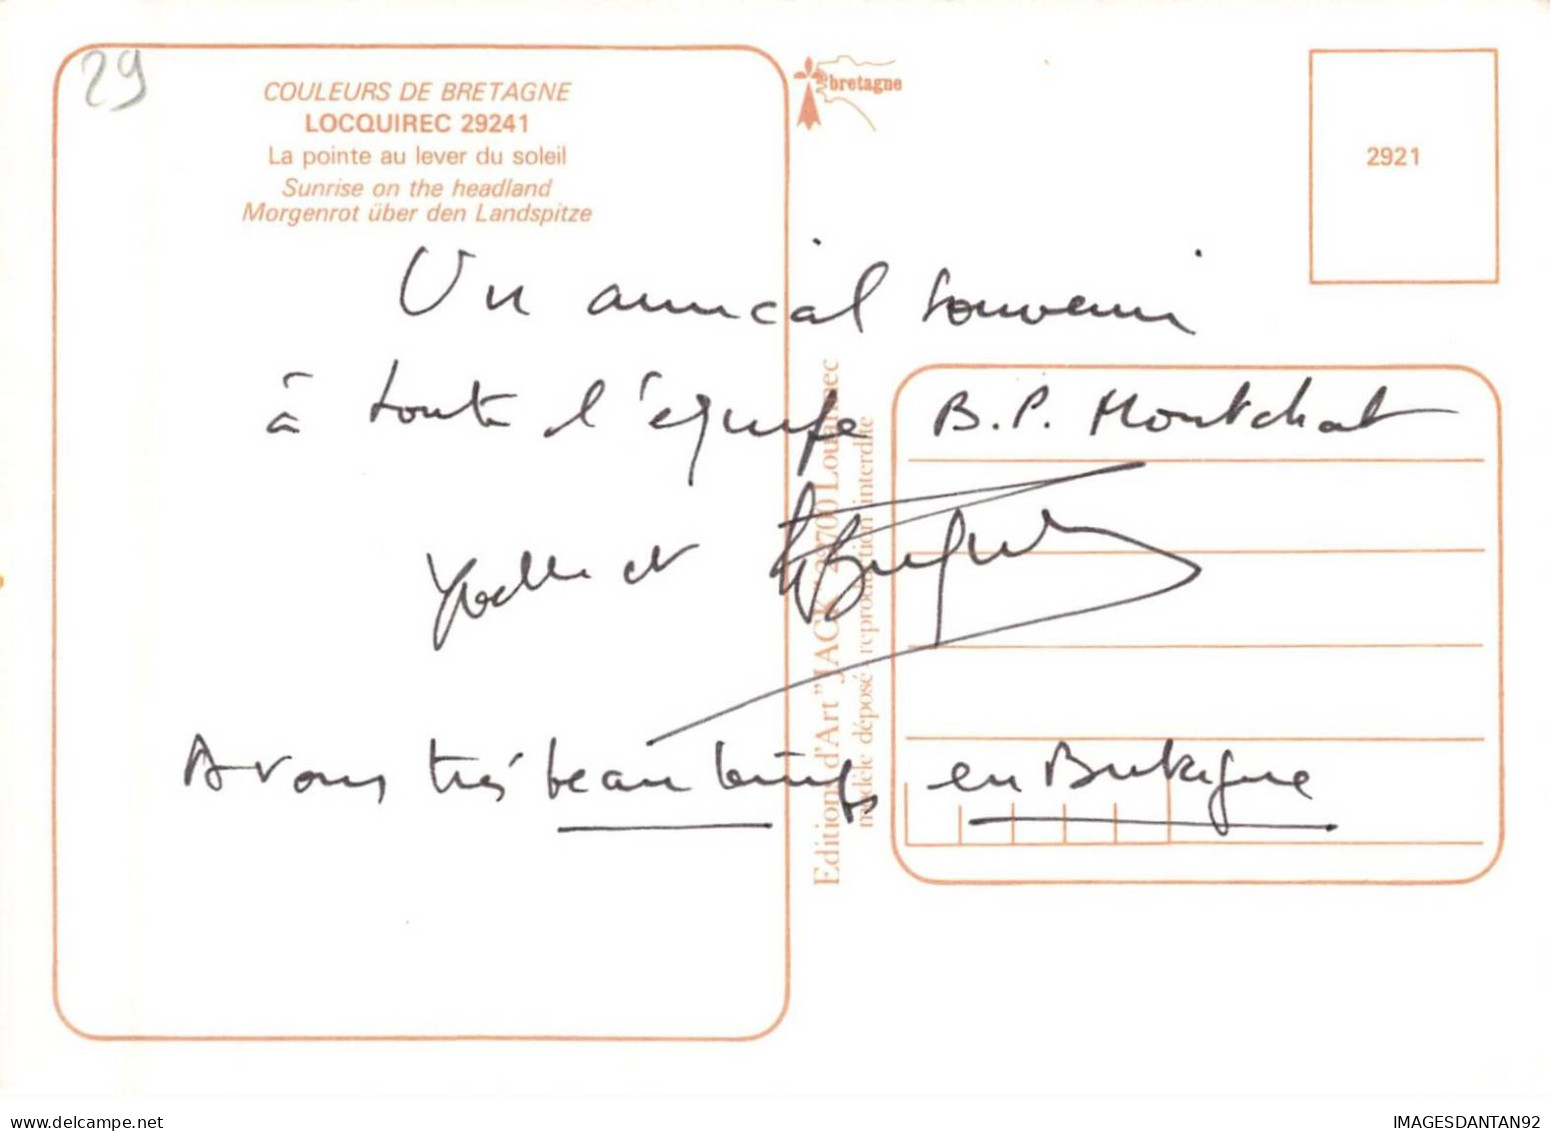 29
COULEURS DE BRETAGNE
LOCQUIREC 29241
La pointe au lever du soleil
Sunrise on the headland
Morgenrot über den Landspitze
bretagne
2921
Un amical souvenir
à toute l'équipe B.P. Montchat
Yvette et
Avons très beau temps en Bretagne
Editions d'Art "JACK" Louannec
modèle déposé reproduction interdite
IMAGESDANTAN92